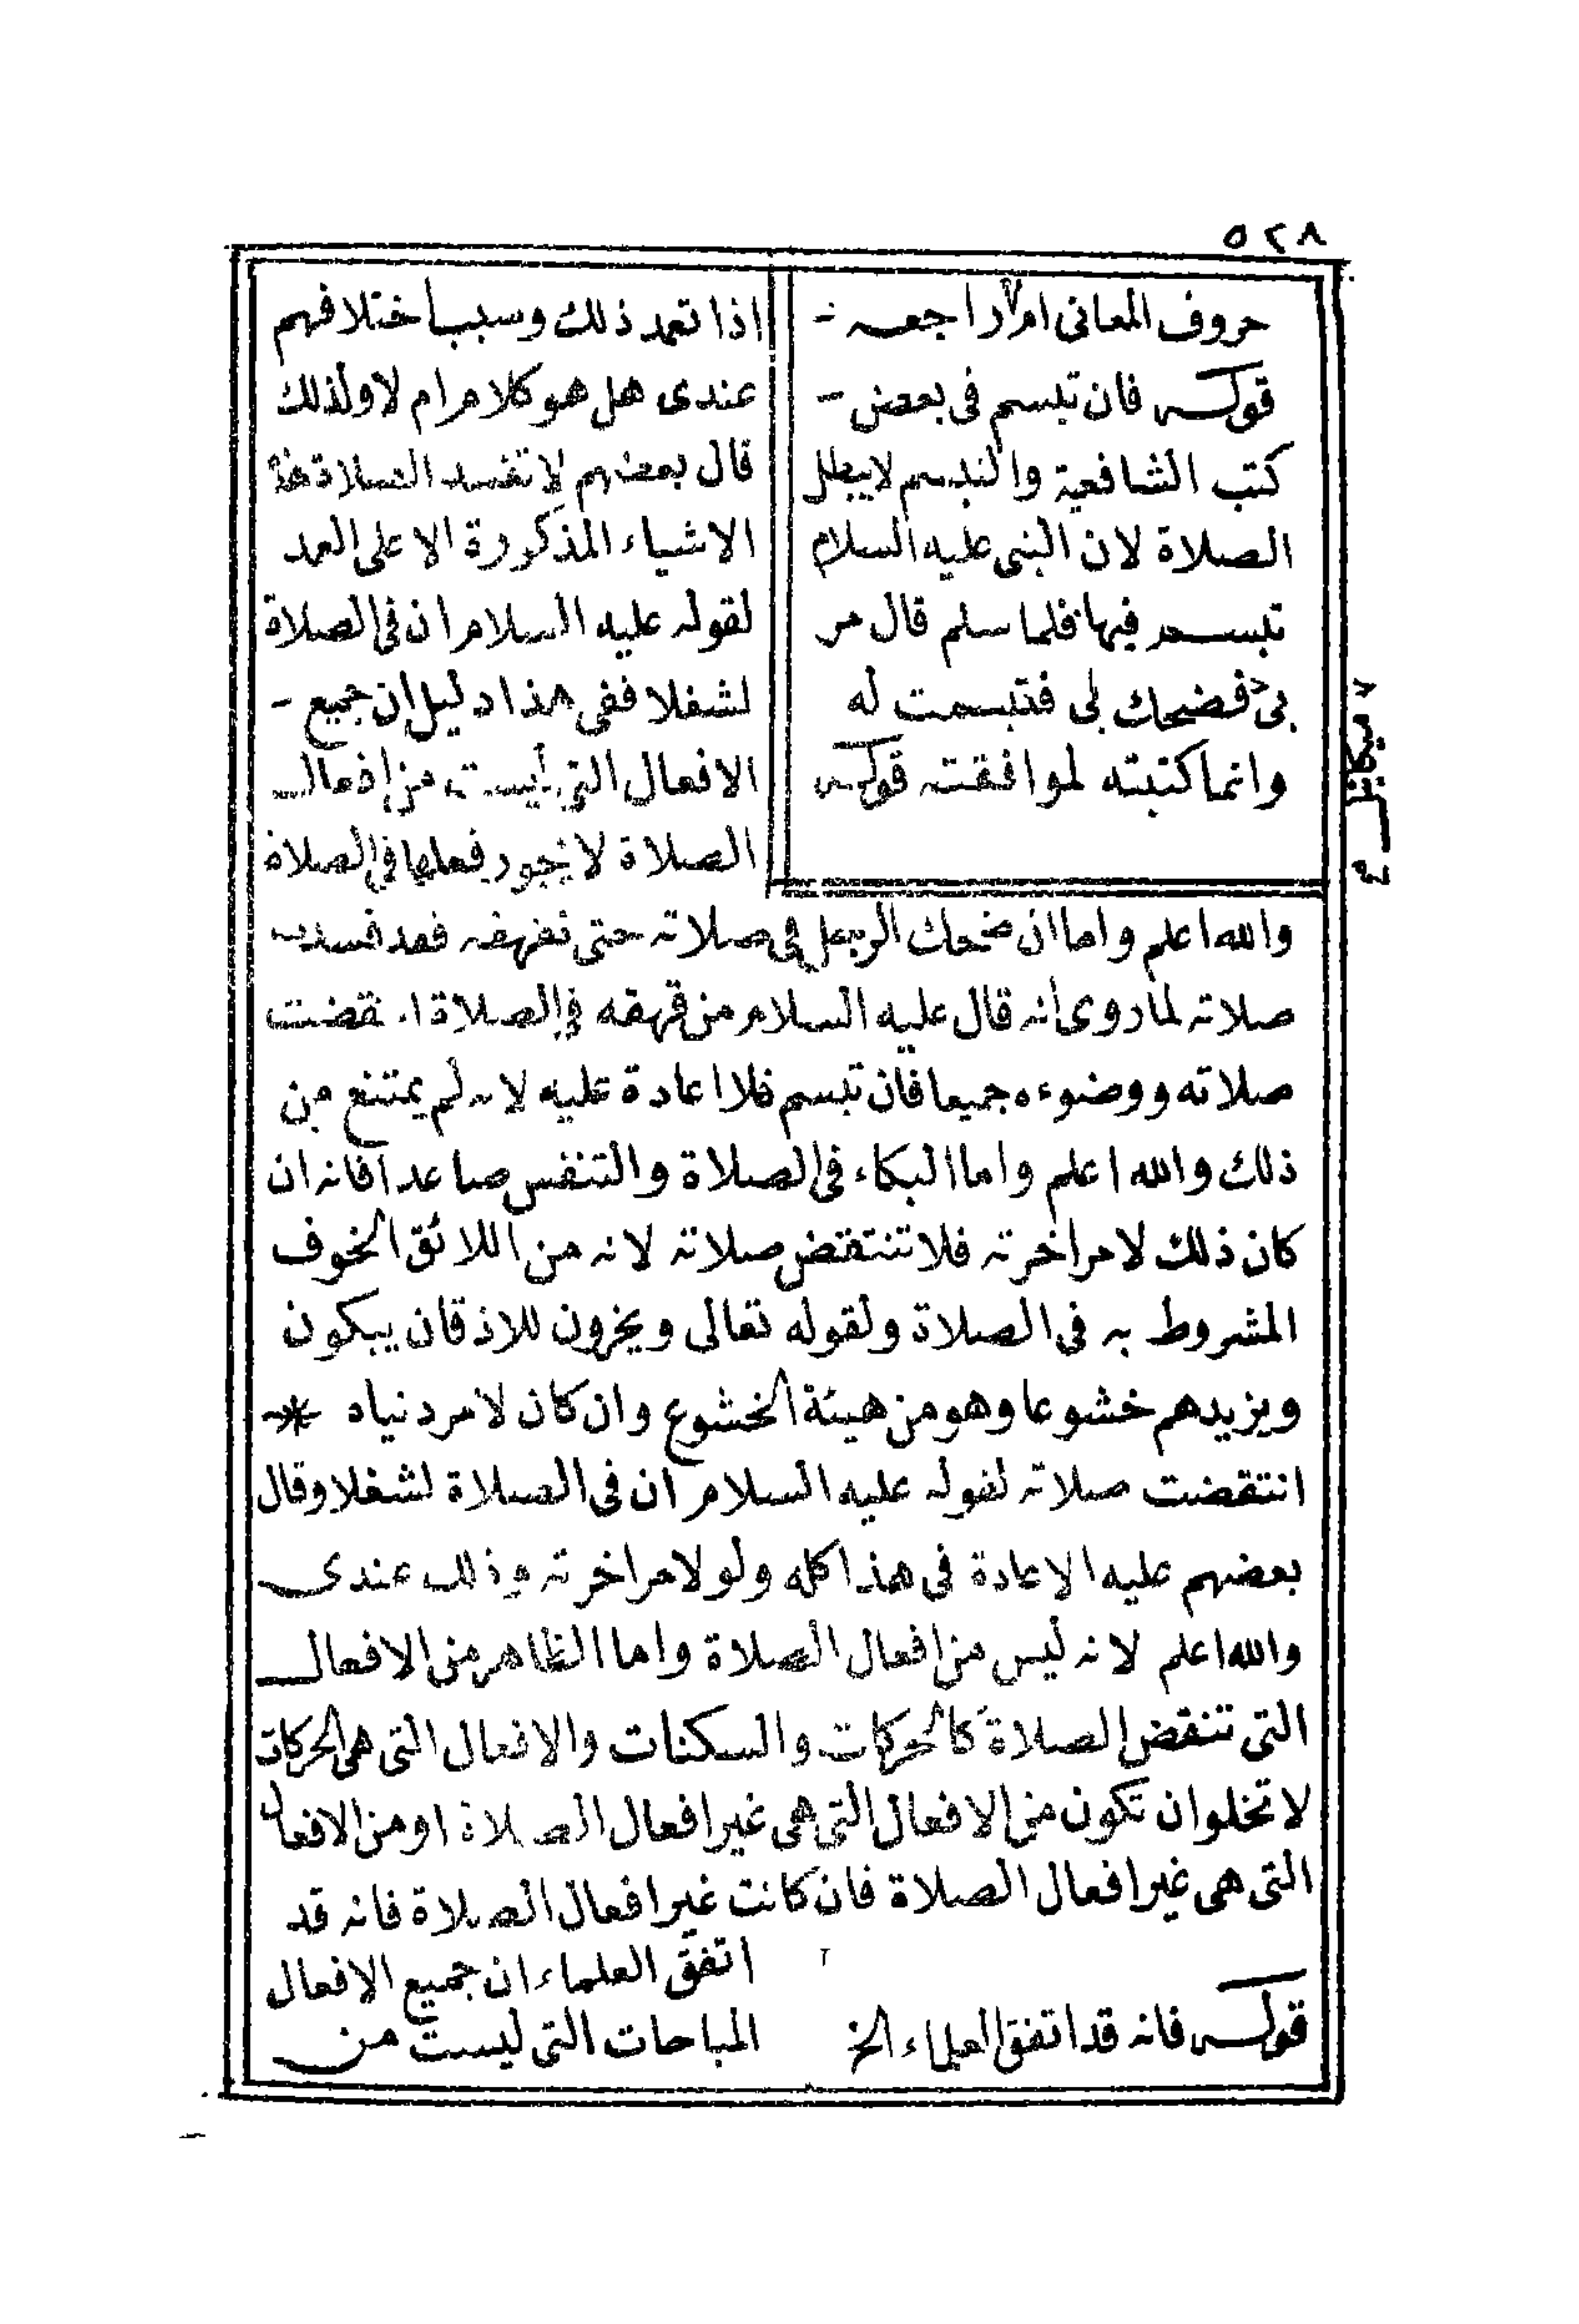 ٥٢٨
حروف المعانى ام لا راجعه -
قوله فان تبسم فى بعض -
كتب الشافعية والتبسم لا يبطل
الصلاة لان النبى عليه السلام
تبسم فيها فلما سلم قال مر
بى فضحك لى فتبسمت له
وانما كتبته لموافقته قوله
ميكائيل
اذا تعمد ذلك وسبب اختلافهم
عندى هل هو كلام ام لا ولذلك
قال بعضهم لا تفسد الصلاة هذه
الاشياء المذكورة الا على العمد
لقوله عليه السلام ان فى الصلاة
لشغلا ففى هذا دليل ان جميع -
الافعال التى ليست من افعال
الصلاة لا يجوز فعلها فى الصلاة
والله اعلم واما ان ضحك الرجل فى صلاته حتى قهقه فقد فسدت
صلاته لما روى انه قال عليه السلام من قهقه فى الصلاة انتقضت
صلاته ووضوءه جميعا فان تبسم فلا اعادة عليه لانه لم يمتنع من
ذلك والله اعلم واما البكاء فى الصلاة والتنفس صاعدا فانه ان
كان ذلك لامر اخرته فلا تنتقض صلاته لانه من اللائق الخوف
المشروط به فى الصلاة ولقوله تعالى ويخرون للاذقان يبكون
ويزيدهم خشوعا وهو من هيئة الخشوع وان كان لامر دنياه *
انتقضت صلاته لقوله عليه السلام ان فى الصلاة لشغلا وقال
بعضهم عليه الاعادة فى هذا كله ولو لامر اخرته وذلك عندى
والله اعلم لانه ليس من افعال الصلاة واما الظاهر من الافعال
التى تنقض الصلاة كالحركات والسكنات والافعال التى هى الحركات
لا تخلو ان تكون من الافعال التى هى غير افعال الصلاة او من الافعال
التى هى غير افعال الصلاة فان كانت غير افعال الصلاة فانه قد
اتفق العلماء ان جميع الافعال
المباحات التى ليست من
قوله فانه قد اتفق العلماء الخ